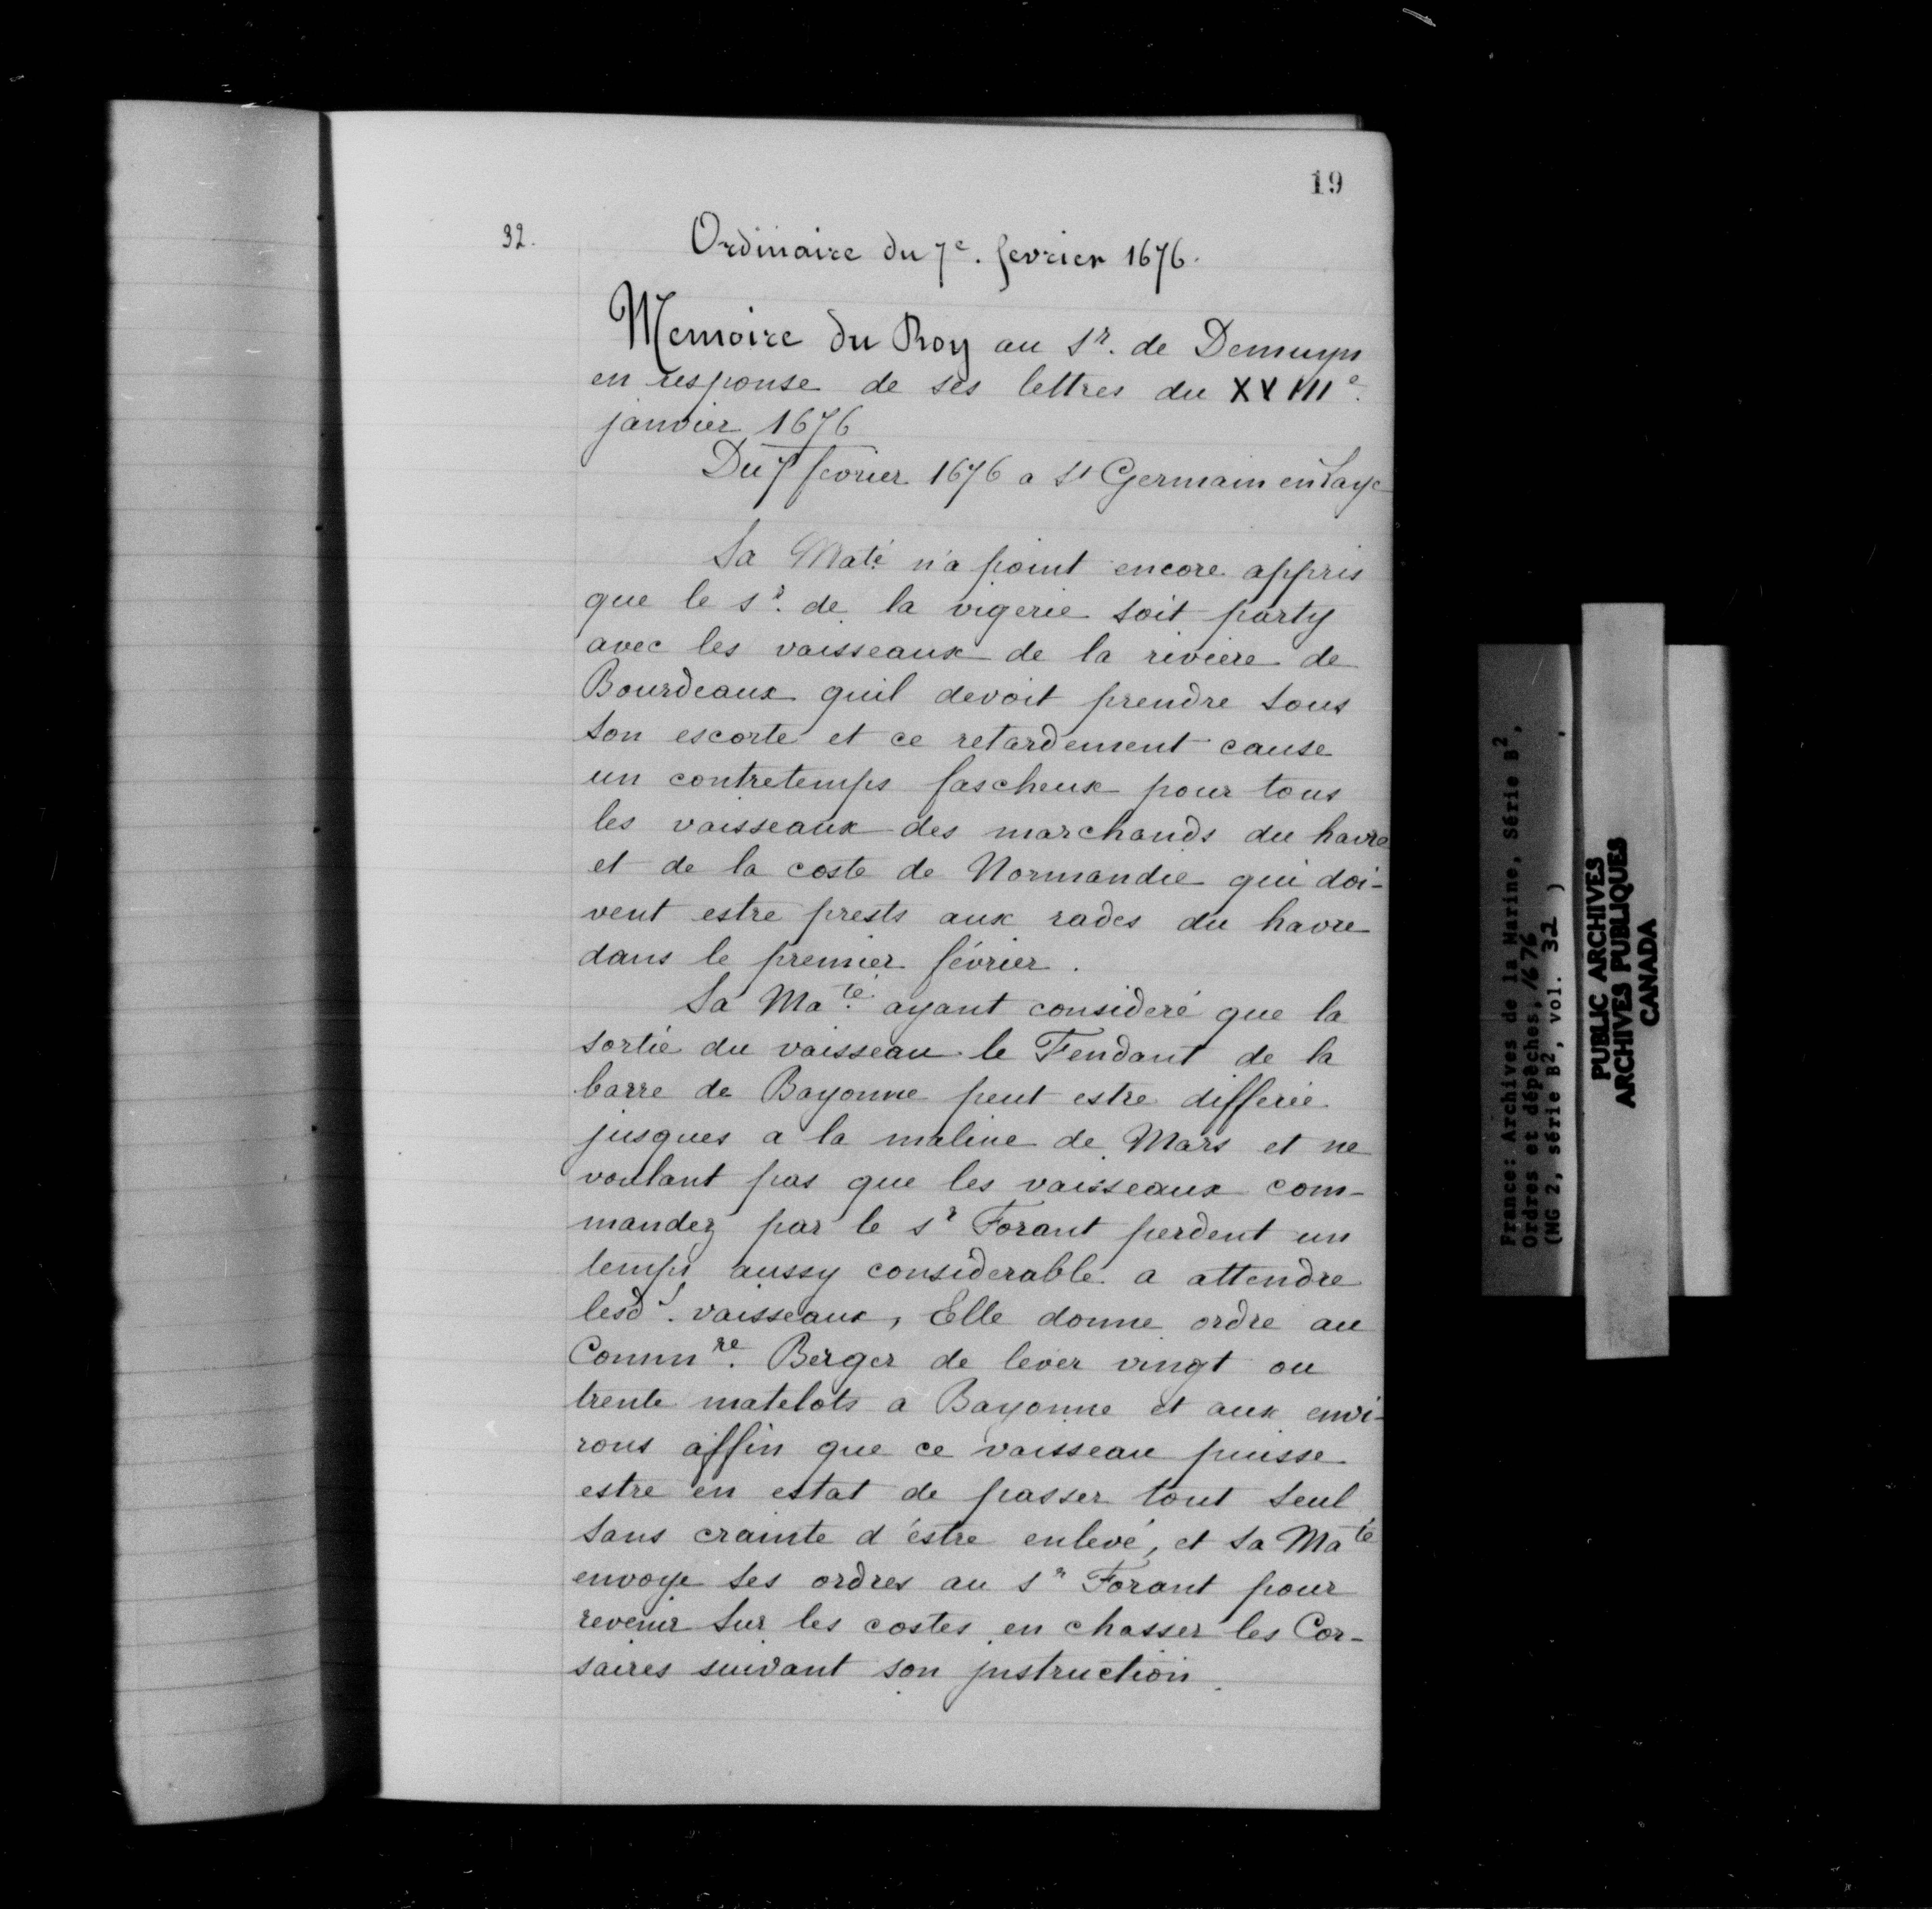 19
32.
Ordinaire du 7e. fevrier 1676.
Memoire du Roy au Sr. de Demuyn
en response de ses lettres du XVIIIe.
janvier 1676
Du 7 fevrier 1676 a St Germain en Laye
Sa Maté n'a point encore appris
que le sr. de la vigerie soit party
avec les vaisseaux de la riviere de
Bourdeaux quil devoit prendre sous
son escorte et ce retardement cause
un contretemps fascheux pour tous
les vaisseaux des marchands du havre
et de la coste de Normandie qui doi-
vent estre prests aux rades du havre
dans le premier février.
Sa Maté. ayant consideré que la
sortie du vaisseau le Fendant de la
barre de Bayonne peut estre differée
jusques a la maline de Mars et ne
voulant pas que les vaisseaux com-
mandez par le sr Forant perdent un
temps aussy considerable a attendre
lesds. vaisseaux, Elle donne ordre au
Commre. Berger de lever vingt ou
trente matelots a Bayonne et aux envi-
rons affin que ce vaisseau puisse
estre en estat de passer tout seul
sans crainte d'éstre enlevé, et sa Maté
envoye ses ordres au sr Forant pour
revenir sur les costes en chasser les Cor-
saires suivant son jnstruction.
France: Archives de la Marine, Série B2,
Ordres et dépêches, 1676
(MG 2, série B2, vol. 32 )
PUBLIC ARCHIVES
ARCHIVES PUBLIQUES
CANADA